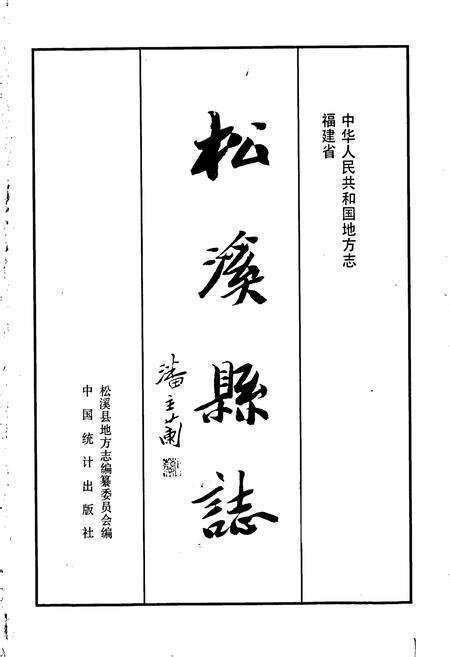 中华人民共和国地方志
福建省
松溪縣誌
潘主蘭
松溪县地方志编纂委员会编
中国统计出版社